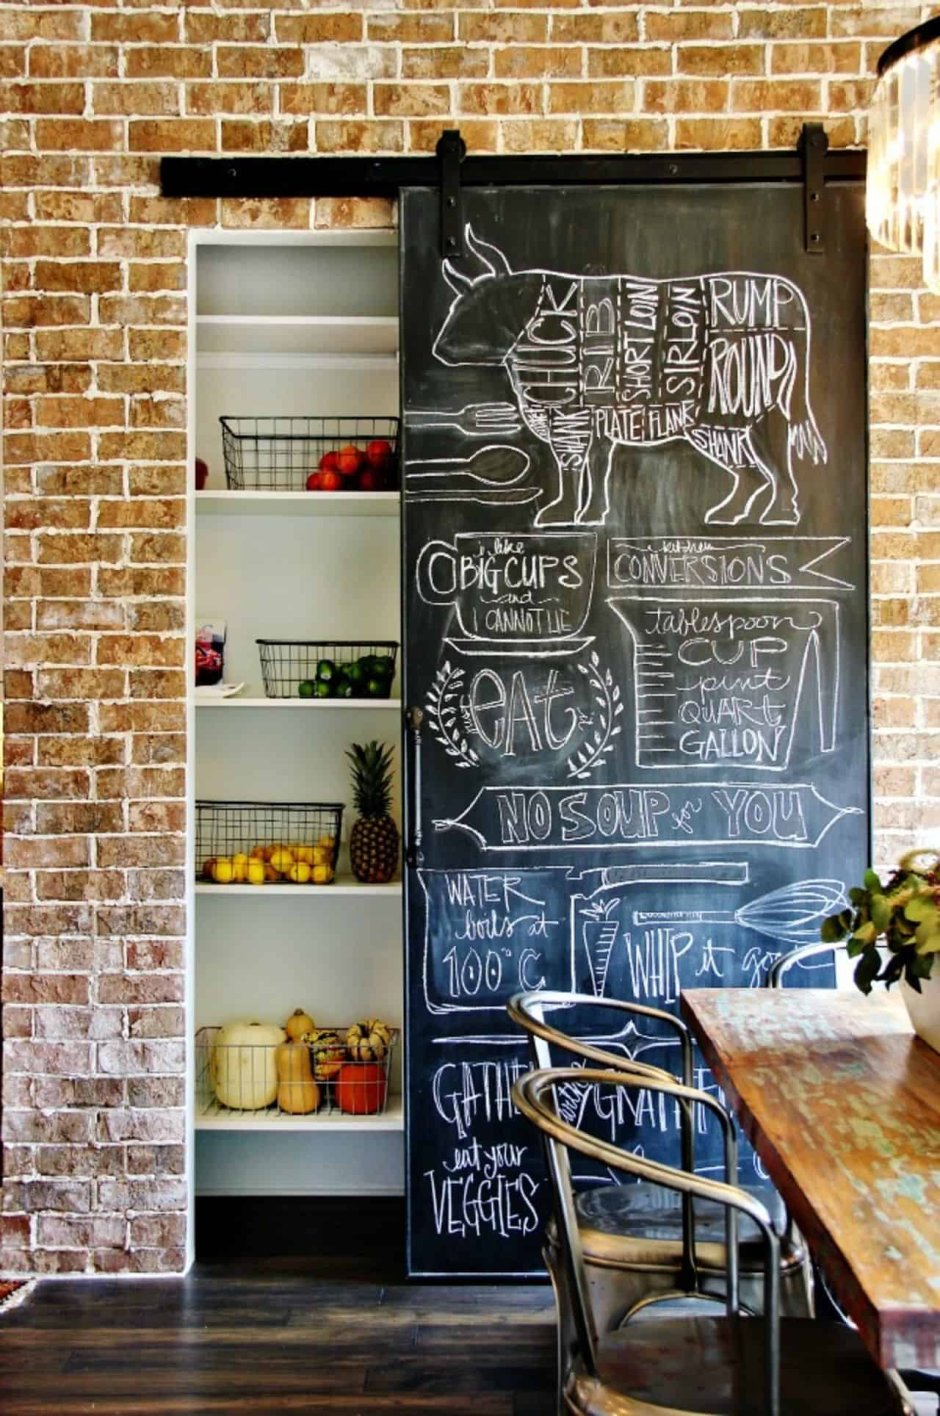 CHUCK
RIB
SHORT LOIN
SIRLOIN
RUMP
ROUND
SHANK
PLATE
FLANK
SHANK
i like
BIG CUPS
and
I CANNOT LIE
kitchen
CONVERSIONS
tablespoon
CUP
pint
QUART
GALLON
eAt
NO SOUP for YOU
WATER
boils at
100° C
WHIP it good
eat your
VEGGIES